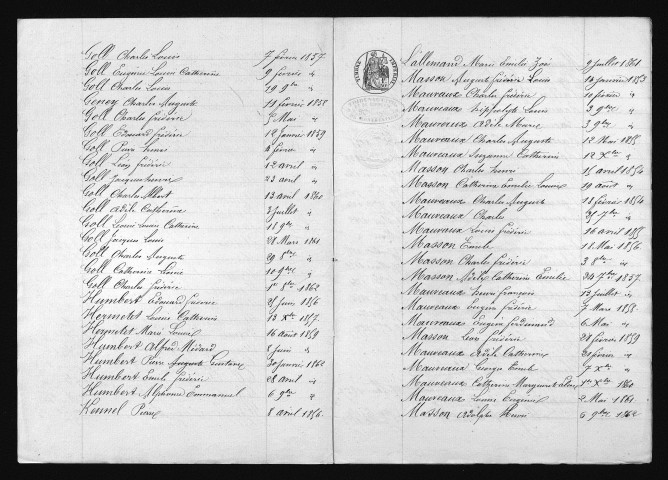 Goll Charles Louis 7 février 1857
Goll Eugénie Louise Catherine 9 février "
Goll Charles Louis 19 9bre "
Genoy Charles Auguste 11 février 1858
Goll Charles Frédéric Mai "
Goll Edouard Frédéric 12 Janvier 1859
Goll Pierre Henri 4 février "
Goll Léon Frédéric 12 avril "
Goll Jacques Henri 23 avril "
Goll Charles Albert 13 avril 1860
Goll Adèle Catherine 3 Juillet "
Goll Louise Catherine 18 9bre "
Goll Jacques Louis 28 Mars 1861
Goll Charles Auguste 29 8bre "
Goll Catherine Louise 10 9bre "
Goll Charles Frédéric 1er 9bre 1862
Humbert Edouard 25 Juin 1856
Heynotes Louise Catherine 13 Xbre 1857
Heynotes Marie Louise 16 août 1859
Humbert Alfred Médard 8 Juin "
Humbert Pierre Auguste Gustave 30 Janvier 1862
Humbert Emile Frédéric 28 avril "
Humbert Alphonse Emmanuel 6 9bre "
Kennel Pierre 8 avril 1856
Lallemand Marie Emélie Zoé 9 Juillet 1861
Masson Auguste Frédéric Louis Janvier 1853
Mauvaux Charles Frédéric 20 février "
Mauveaux Hippolyte Louis 3 9bre "
Mauveaux Adèle Marie 3 9bre "
Mauveaux Charles Auguste 12 Mai 1855
Mauveaux Suzanne Catherine 12 Xbre "
Masson Charles Henri 15 avril 1854
Masson Catherine Emélie Louise 19 août "
Mauveaux Charles Auguste 18 février 1854
Mauveaux Charles 21 7bre "
Mauveaux Louis Frédéric 16 avril 1855
Masson Emile 18 Mai 1856
Masson Charles Frédéric 3 8bre "
Masson Adèle Catherine Emélie 24 7bre 1857
Mauveaux Henri François 13 Juillet "
Mauveaux Eugène Frédéric 7 Mars 1858
Mauveaux Eugène Ferdinand 6 Mai "
Masson Léon Frédéric 28 février 1859
Mauveaux Adèle Catherine 20 février "
Mauveaux Georges Emile 7 Xbre "
Mauveaux Catherine Marguerite 1er Xbre 1860
Mauveaux Louise Eugénie 2 Mai 1861
Masson Adolphe Henri 6 9bre 1862